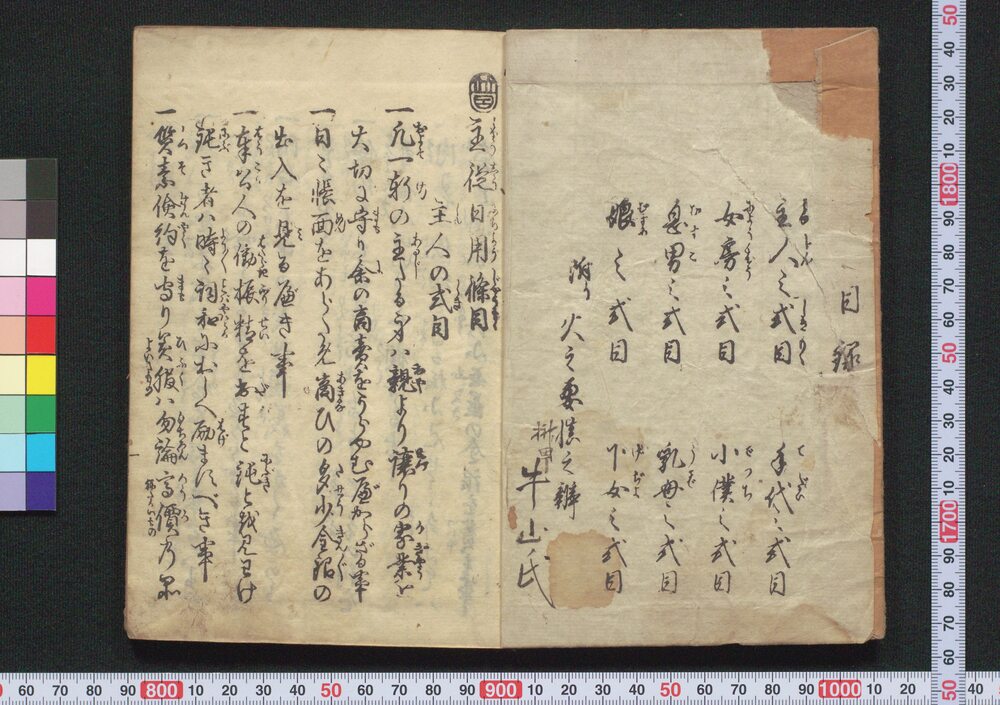 目録
主人之式目
手代之式目
女房之式目
小僕之式目
息男之式目
乳母之式目
娘之式目
下女之式目
附り 火之要慎之辨
牛山氏
主従日用條目
主人の式目
一 凡一軒の主たる身ハ親より譲りの家業を
大切に守り余の商賣をうらやむべからざる事
一 日々帳面をあらため商ひの多少金銀の
出入を見るべき事
一 奉公人の働振精を出すと鈍とを見わけ
鈍き者ハ時々詞和におしへ励ますべき事
一 質素倹約を守り美服ハ勿論高價の品